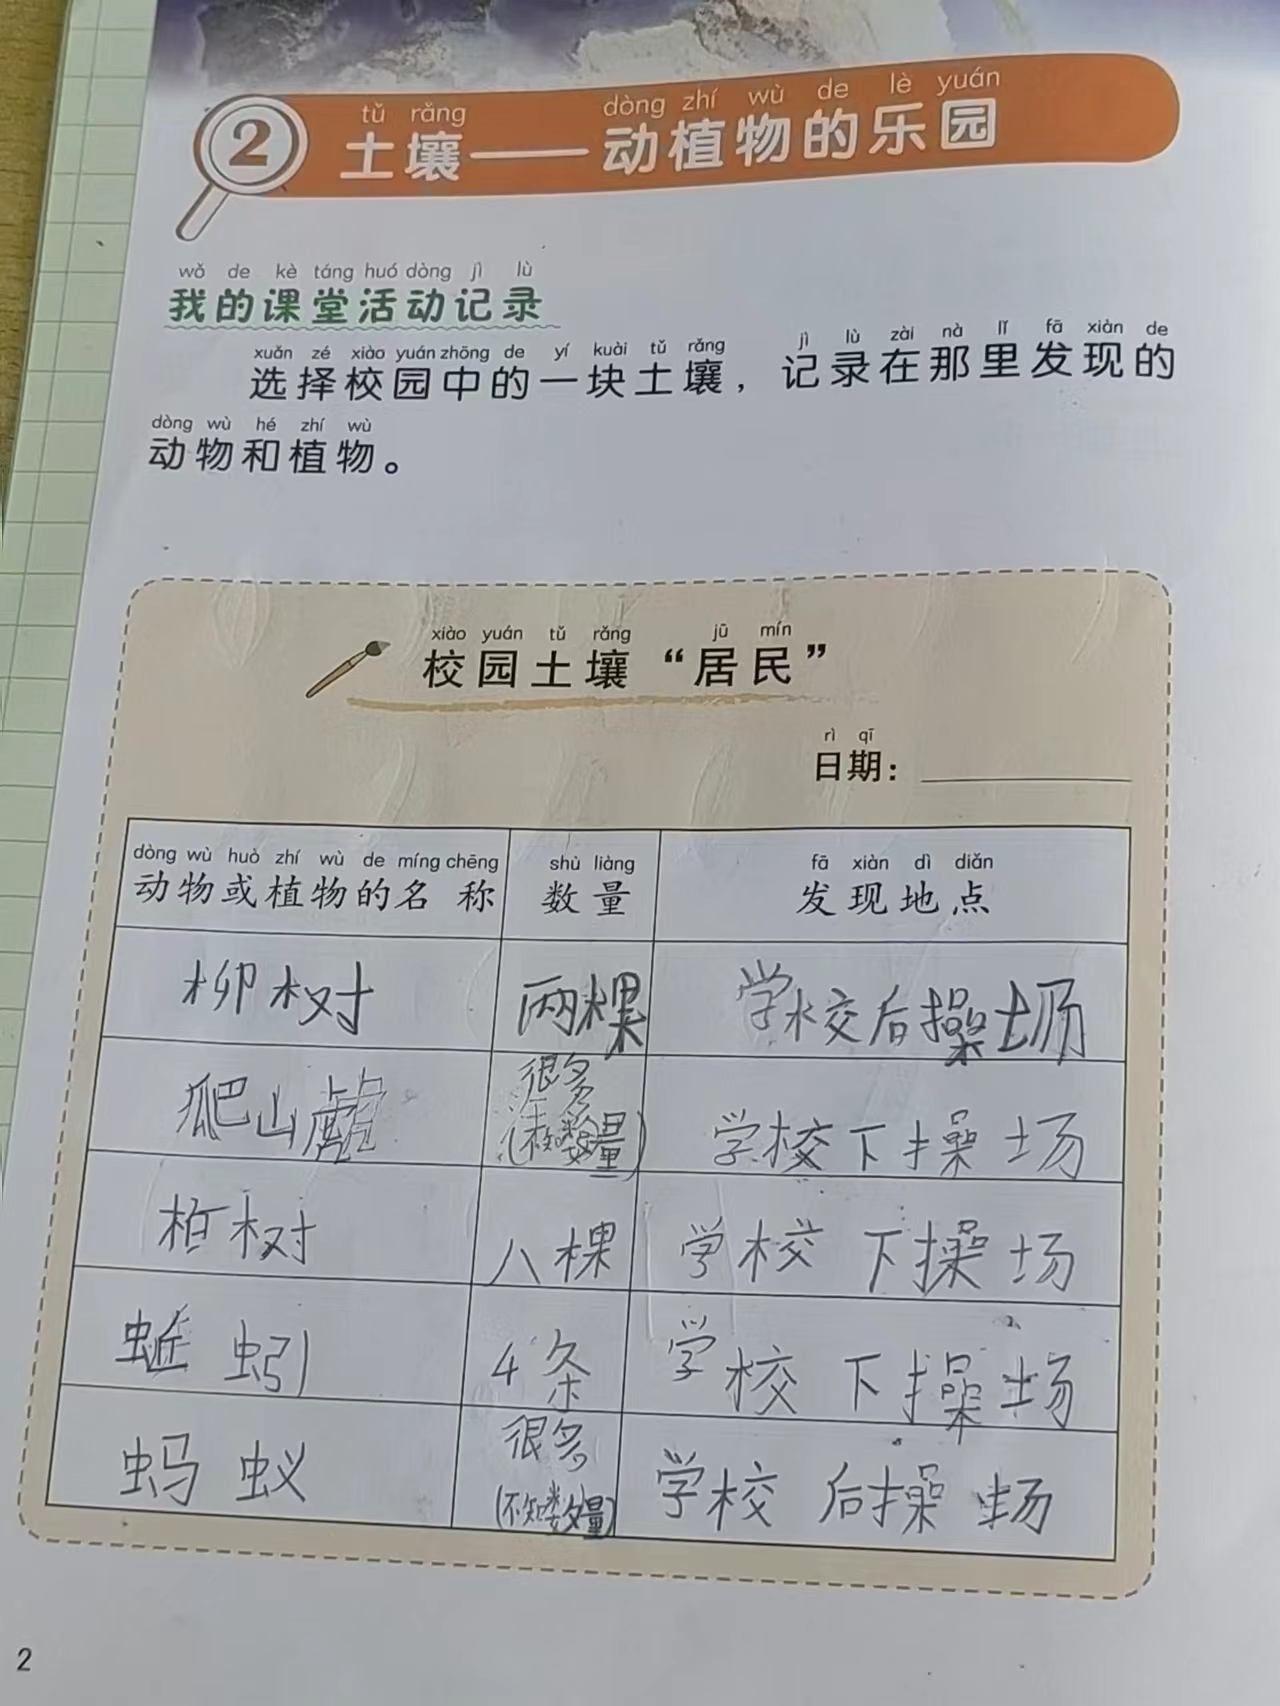 2
tǔ rǎng dòng zhí wù de lè yuán
土壤——动植物的乐园
wǒ de kè táng huó dòng jì lù
我的课堂活动记录
xuǎn zé xiào yuán zhōng de yí kuài tǔ rǎng jì lù zài nà lǐ fā xiàn de
选择校园中的一块土壤，记录在那里发现的
dòng wù hé zhí wù
动物和植物。
xiào yuán tǔ rǎng jū mín
校园土壤“居民”
rì qī
日期：
dòng wù huò zhí wù de míng chēng shù liàng fā xiàn dì diǎn
动物或植物的名称 数量 发现地点
柳树 两棵 学校后操场
爬山虎 很多(不知数量) 学校下操场
柏树 八棵 学校下操场
蚯蚓 4条 学校下操场
蚂蚁 很多(不知数量) 学校后操场
2